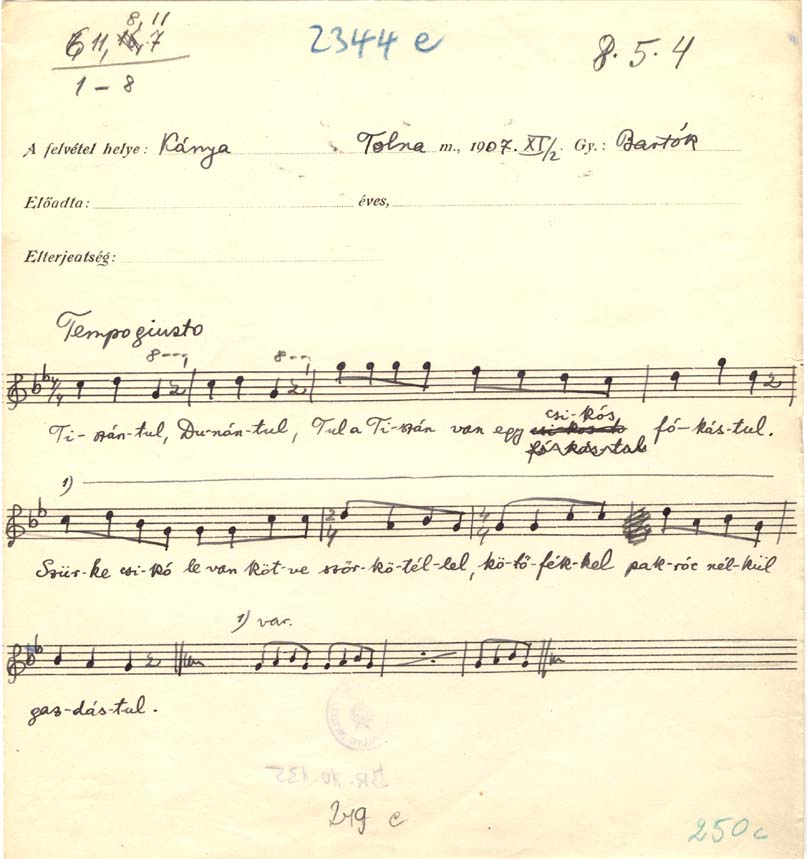 8, 11
6 11, 16, 7
1 - 8
2344 e
8. 5. 4
A felvétel helye: Kánya Tolna m., 1907. XI/2. Gy.: Bartók
Előadta: éves,
Elterjeatség:
Tempo giusto
8---, 8---,
4/4
csi-kós
Ti-szán-tul, Du-nán-tul, Tul a Ti-szán van egy csi-kos fó-kás-tul.
1)
2/4 4/4
Szür-ke csi-kó le van köt-ve szőr-kö-tél-lel, kö-tő-fék-kel pak-róc nél-kül
1) var.
gaz-dás-tul.
BR. 10.135
249 c
250 c